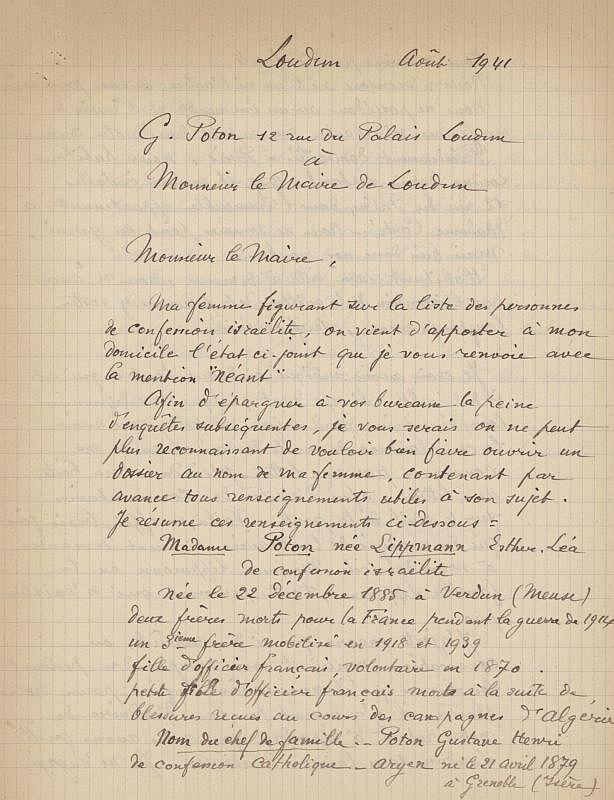 Loudun Août 1941
G. Poton 12 rue du Palais Loudun
à
Monsieur le Maire de Loudun
Monsieur le Maire,
Ma femme figurant sur la liste des personnes
de confession israëlite, on vient d'apporter à mon
domicile l'état ci-joint que je vous renvoie avec
la mention "Néant"
Afin d'épargner à vos bureaux la peine
d'enquêtes subséquentes, je vous serais on ne peut
plus reconnaissant de vouloir bien faire ouvrir un
dossier au nom de ma femme, contenant par
avance tous renseignements utiles à son sujet.
Je résume ces renseignements ci-dessous =
Madame Poton née Lippmann Esther. Léa
de confession israëlite
Née le 22 décembre 1885 à Verdun (Meuse)
deux frères morts pour la France pendant la guerre de 1914
un 3ième frère mobilisé en 1918 et 1939
fille d'officier français, volontaire en 1870.
petite fille d'officier français morts à la suite de
blessures reçues au cours des campagnes d'Algérie
Nom du chef de famille._ Poton Gustave Henri
de confession catholique _ aryen né le 21 avril 1879
à Grenoble (Isère)